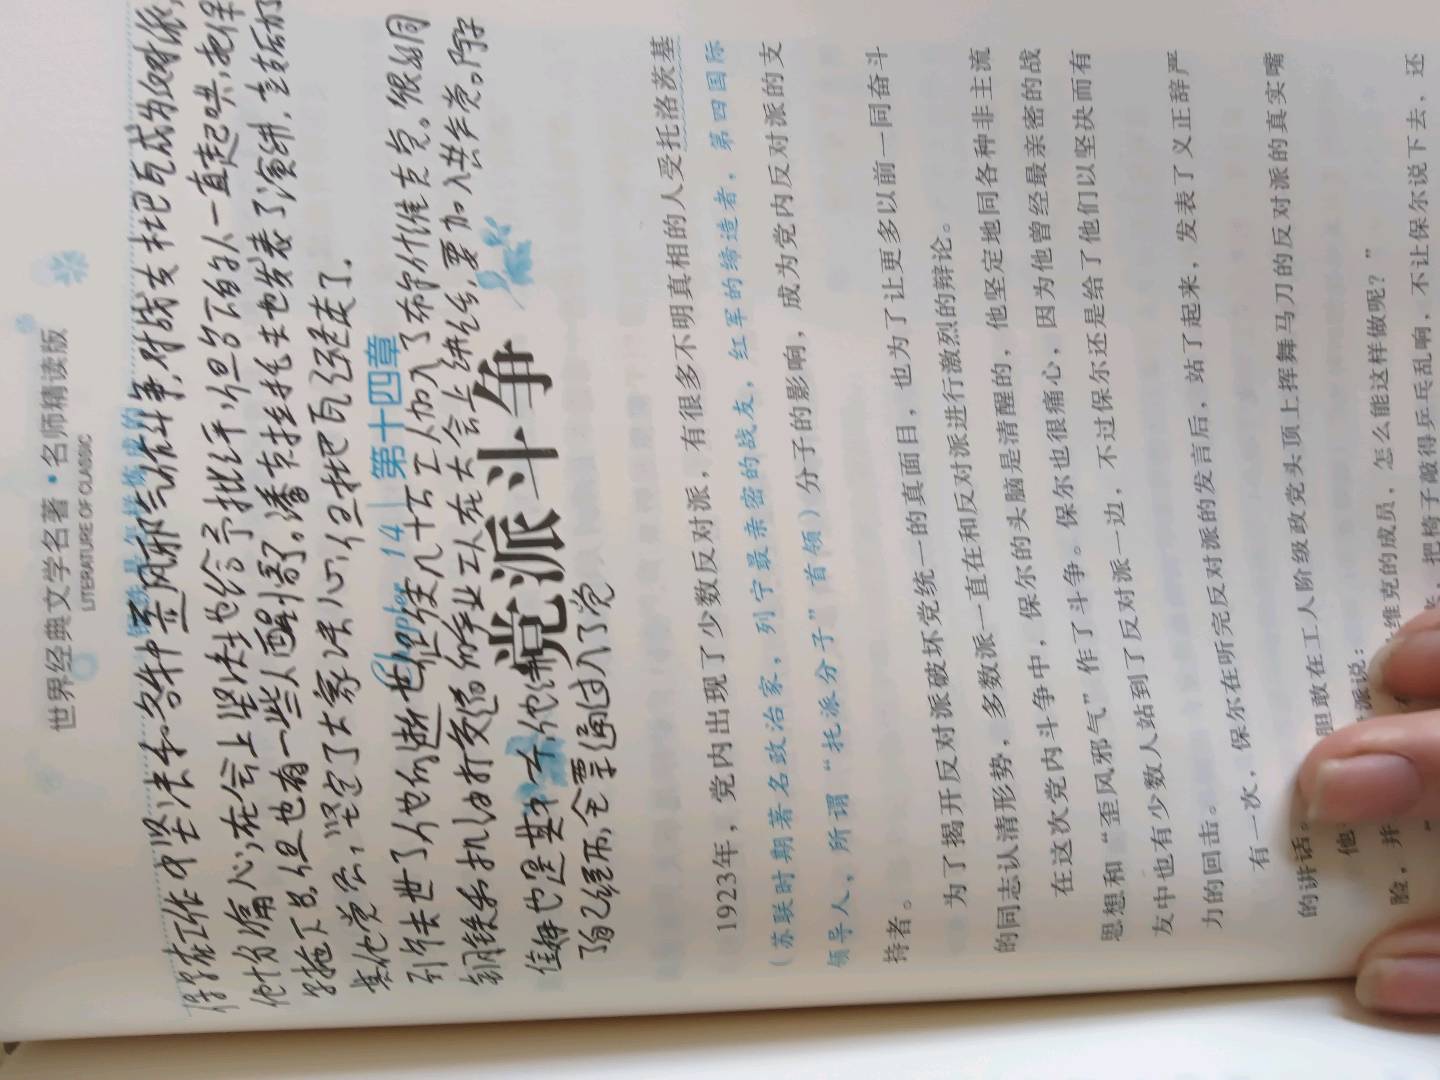 世界经典文学名著·名师精读版
LITERATURE OF CLASSIC
钢铁是怎样炼成的
保尔在工作中坚决和各种歪风邪气作斗争,对战友杜巴瓦成为反对派,
他十分痛心,在会上坚决地给予批评,但台下的人一直起哄,把保
尔拖下台,但也有一些人醒悟了。潘克拉托夫也发表了演讲,言
其他党员,坚定了大家决心,但杜巴瓦已经走了。
列宁去世了,他的逝世使几十万工人加入了布尔什维克党。很多同
钢铁和机油打交道的工人在大会上讲话,要加入共产党。保尔
也是其中
了自己经历,全票通过入了党
Chapter 14 第十四章
党派斗争
1923年,党内出现了少数反对派,有很多不明真相的人受托洛茨基
(苏联时期著名政治家,列宁最亲密的战友,红军的缔造者,第四国际
领导人,所谓“托派分子”首领)分子的影响,成为党内反对派的支
持者。
为了揭开反对派破坏党统一的真面目,也为了让更多以前一同奋斗
的同志认清形势,多数派一直在和反对派进行激烈的辩论。
在这次党内斗争中,保尔的头脑是清醒的,他坚定地同各种非主流
思想和“歪风邪气”作了斗争。保尔也很痛心,因为他曾经最亲密的战
友中也有少数人站到了反对派一边,不过保尔还是给了他们以坚决而有
力的回击。
有一次,保尔在听完反对派的发言后,站了起来,发表了义正辞严
的讲话。
胆敢在工人阶级政党头顶上挥舞马刀的反对派的真实嘴
脸,并
维克的成员,怎么能这样做呢?”
派说:
把椅子敲得乒乓乱响,不让保尔说下去,还